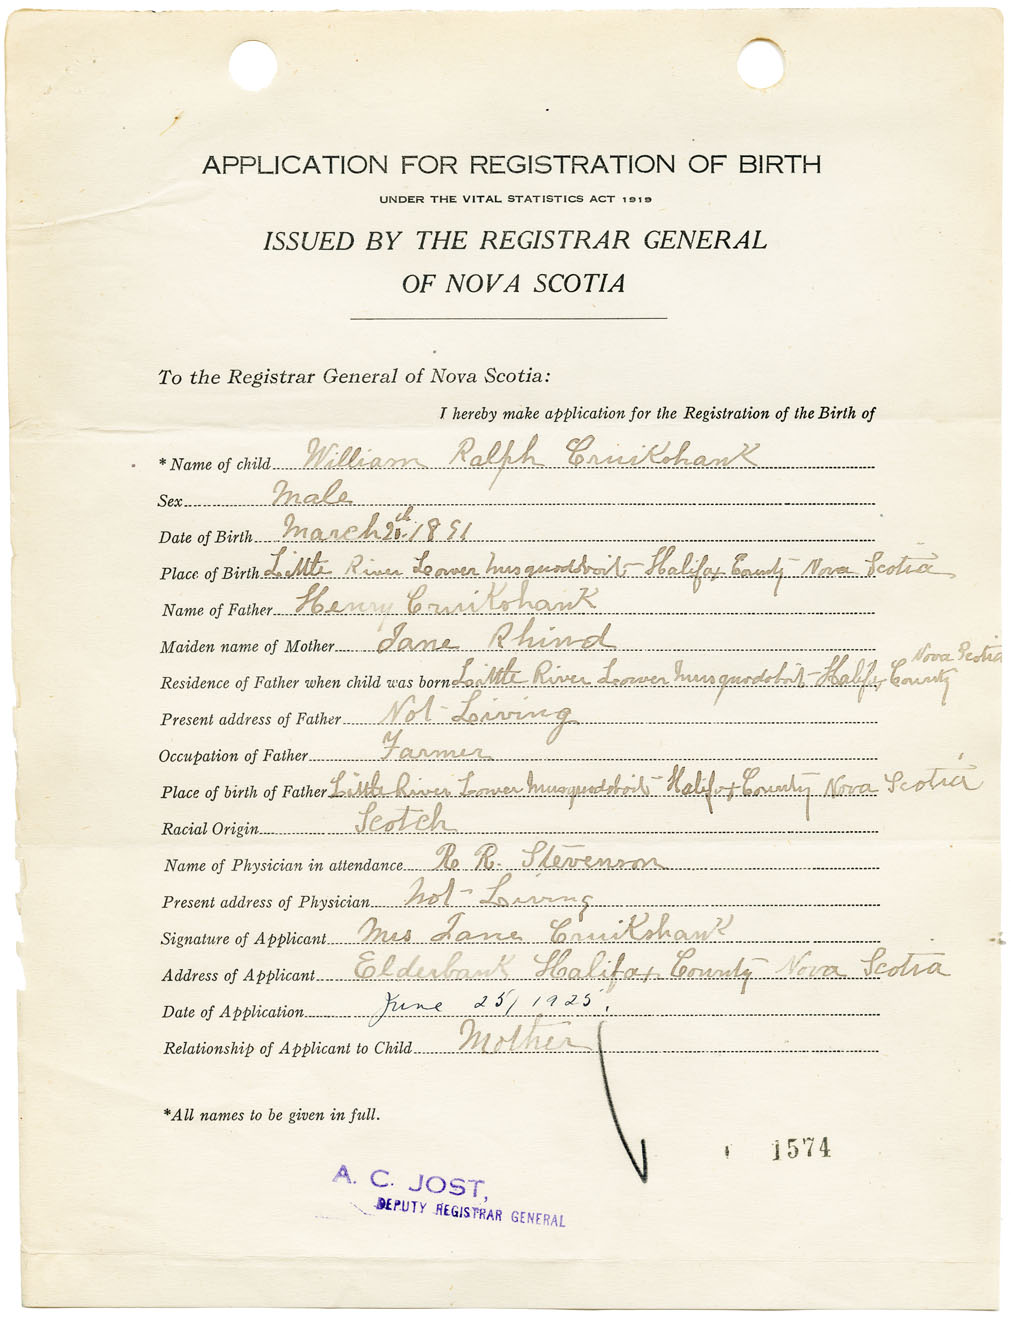 APPLICATION FOR REGISTRATION OF BIRTH
UNDER THE VITAL STATISTICS ACT 1919
ISSUED BY THE REGISTRAR GENERAL
OF NOVA SCOTIA
To the Registrar General of Nova Scotia:
I hereby make application for the Registration of the Birth of
* Name of child William Ralph Cruikshank
Sex Male
Date of Birth March th 1891
Place of Birth Little River Lower Musquodoboit Halifax County Nova Scotia
Name of Father Henry Cruikshank
Maiden name of Mother Jane Rhind
Nova Scotia
Residence of Father when child was born Little River Lower Musquodoboit Halifx County
Present address of Father Not Living
Occupation of Father Farmer
Place of birth of Father Little River Lower Musquodoboit Halifax County Nova Scotia
Racial Origin Scotch
Name of Physician in attendance R. R. Stevenson
Present address of Physician Not Living
Signature of Applicant Mrs Jane Cruikshank
Address of Applicant Elderbank Halifax County Nova Scotia
Date of Application June 25/1925.
Relationship of Applicant to Child Mother
*All names to be given in full.
1574
A. C. JOST,
DEPUTY REGISTRAR GENERAL